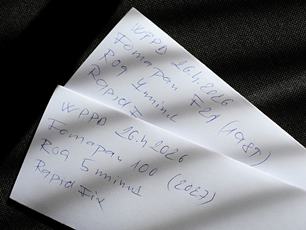 WPPD 26.4.2026
Fomapan F21 (1987)
R09 4 minut
Rapid F
WPPD 26.4.2026
Fomapan 100 (2027)
R09 5 minut
Rapid Fix